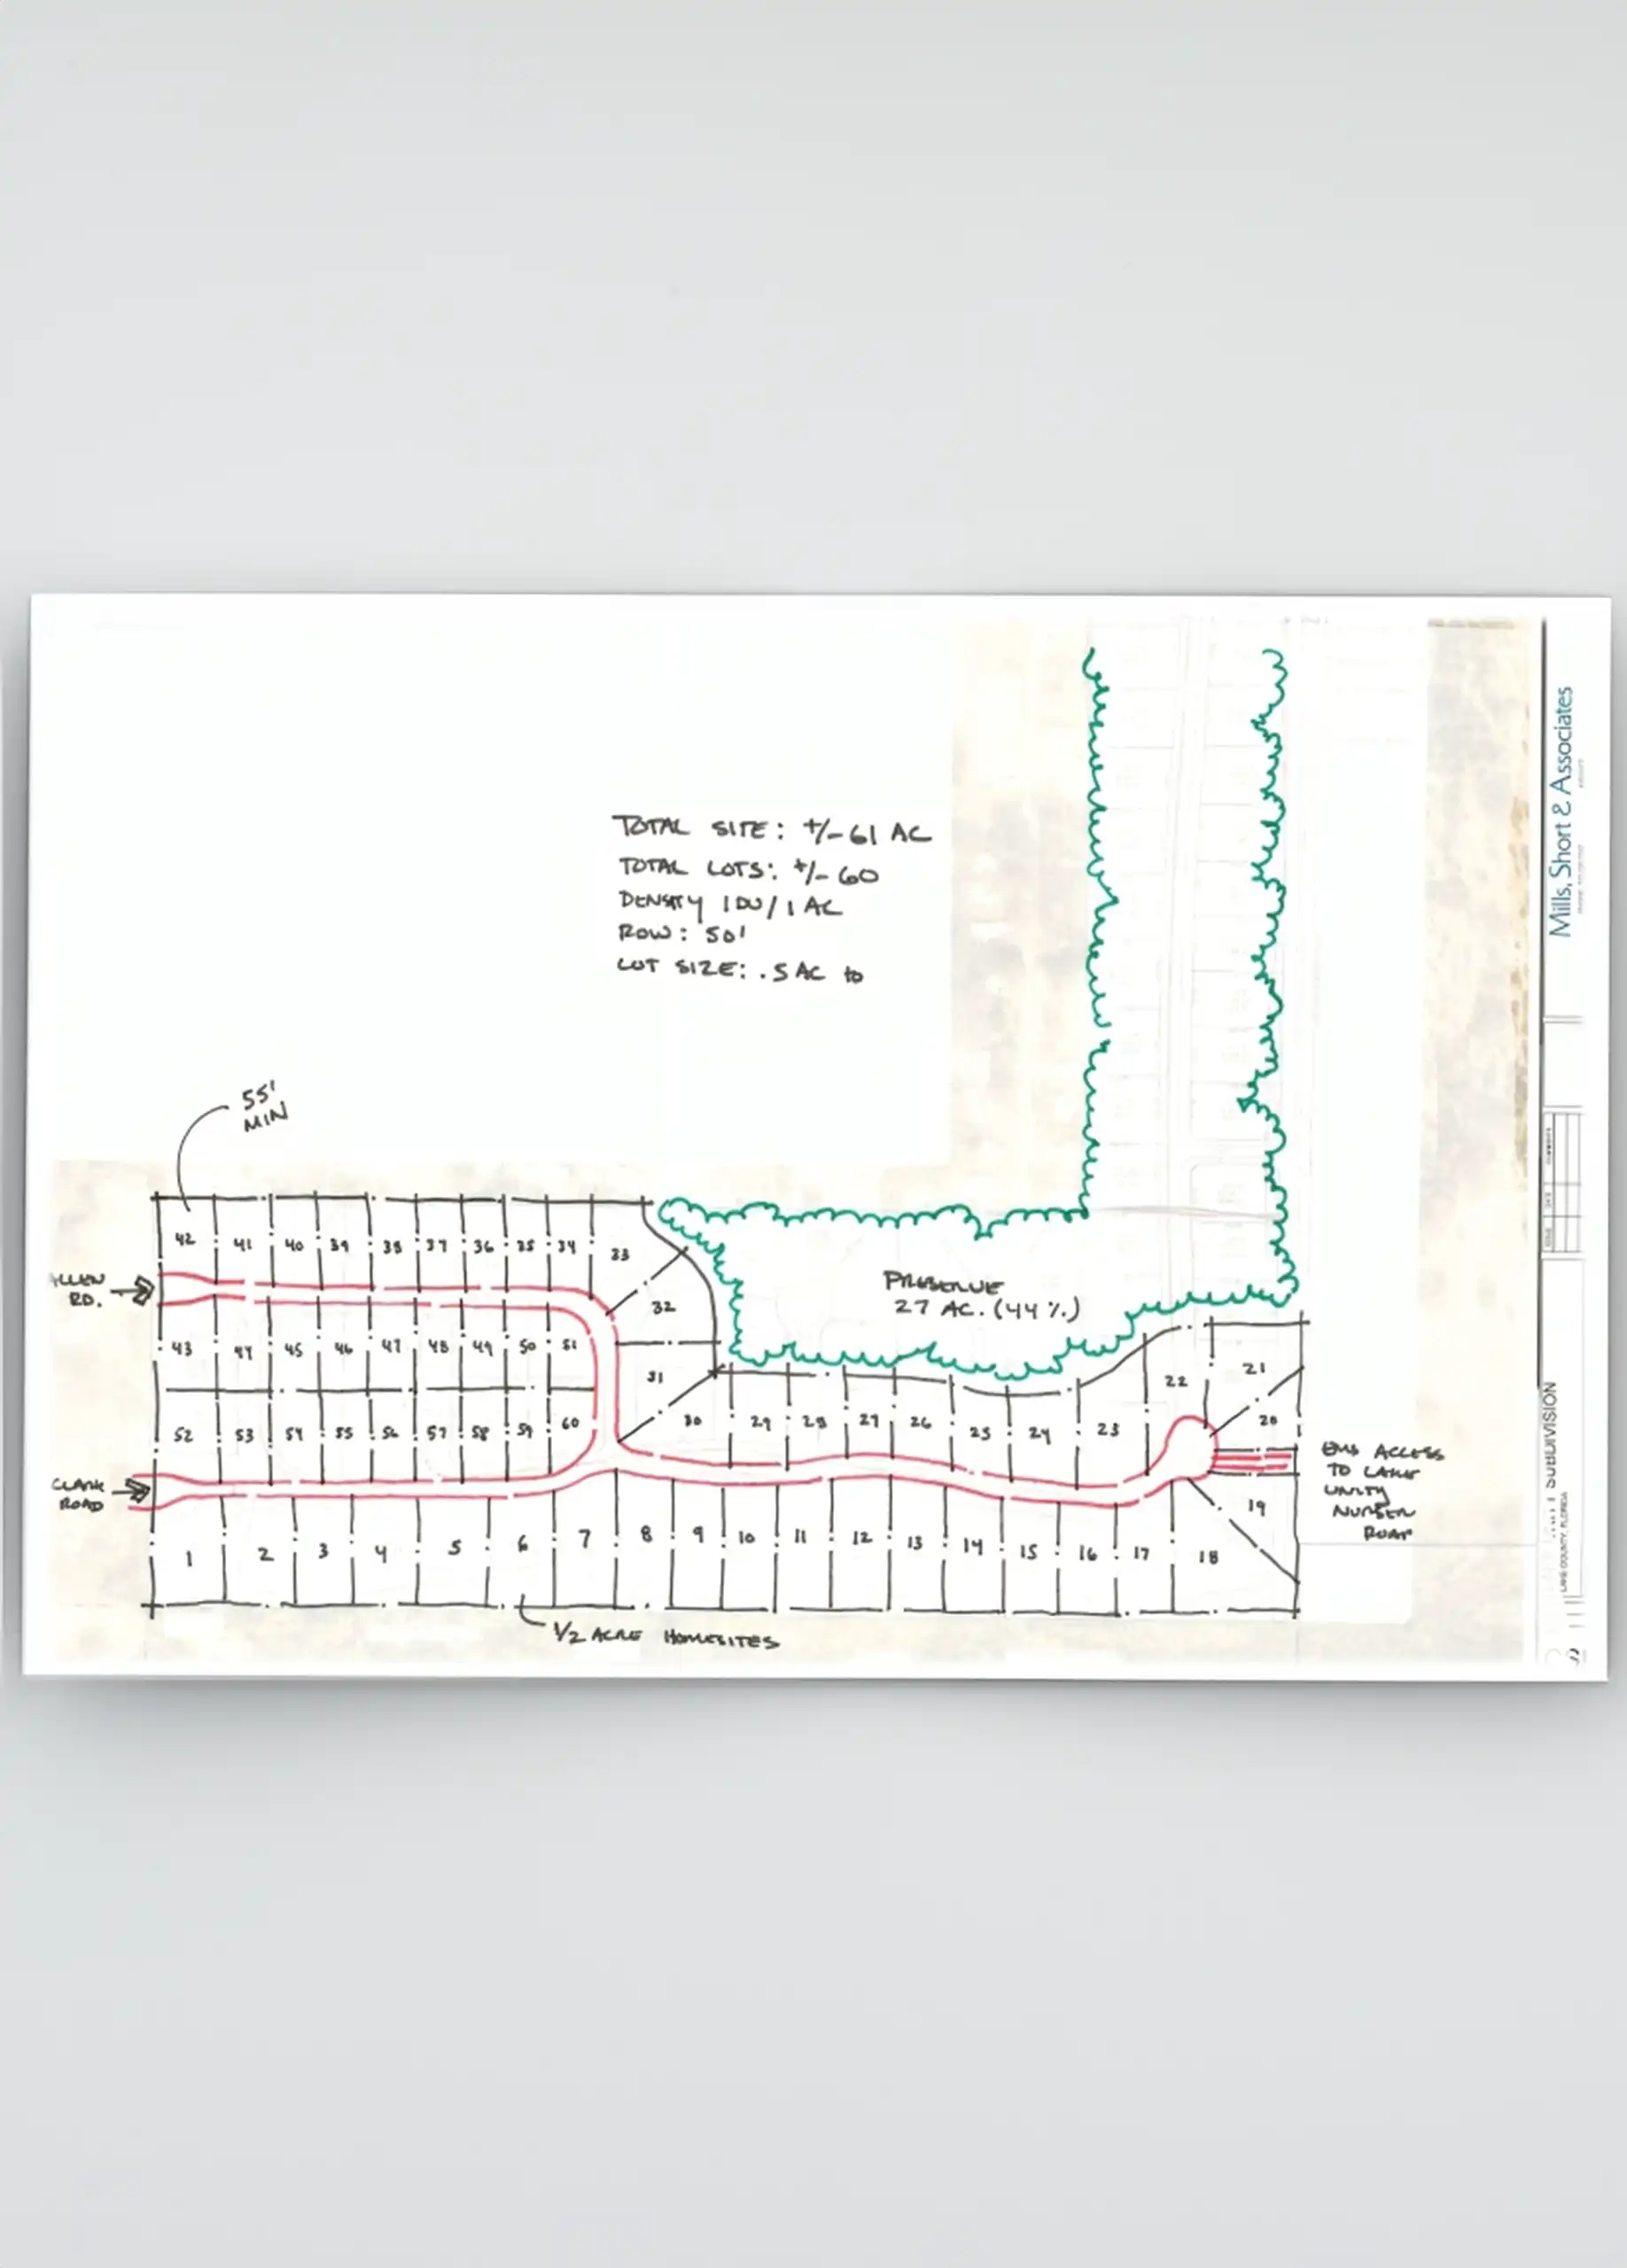 TOTAL SITE: +/- 61 AC
TOTAL LOTS: +/- 60
DENSITY 1 DU / 1 AC
ROW: 50'
LOT SIZE: .5 AC to
55'
MIN
42 41 40 39 38 37 36 35 34 33
ALLEN
RD.
32
PRESERVE
27 AC. (44%)
43 44 45 46 47 48 49 50 51
31
22 21
52 53 54 55 56 57 58 59 60
30 29 28 27 26 25 24 23
20
CLARK
ROAD
EMS ACCESS
TO LAKE
UNITY
NURSERY
ROAD
19
1 2 3 4 5 6 7 8 9 10 11 12 13 14 15 16 17 18
1/2 ACRE HOMESITES
Mills, Short & Associates
SUBDIVISION
LAKE COUNTY, FLORIDA